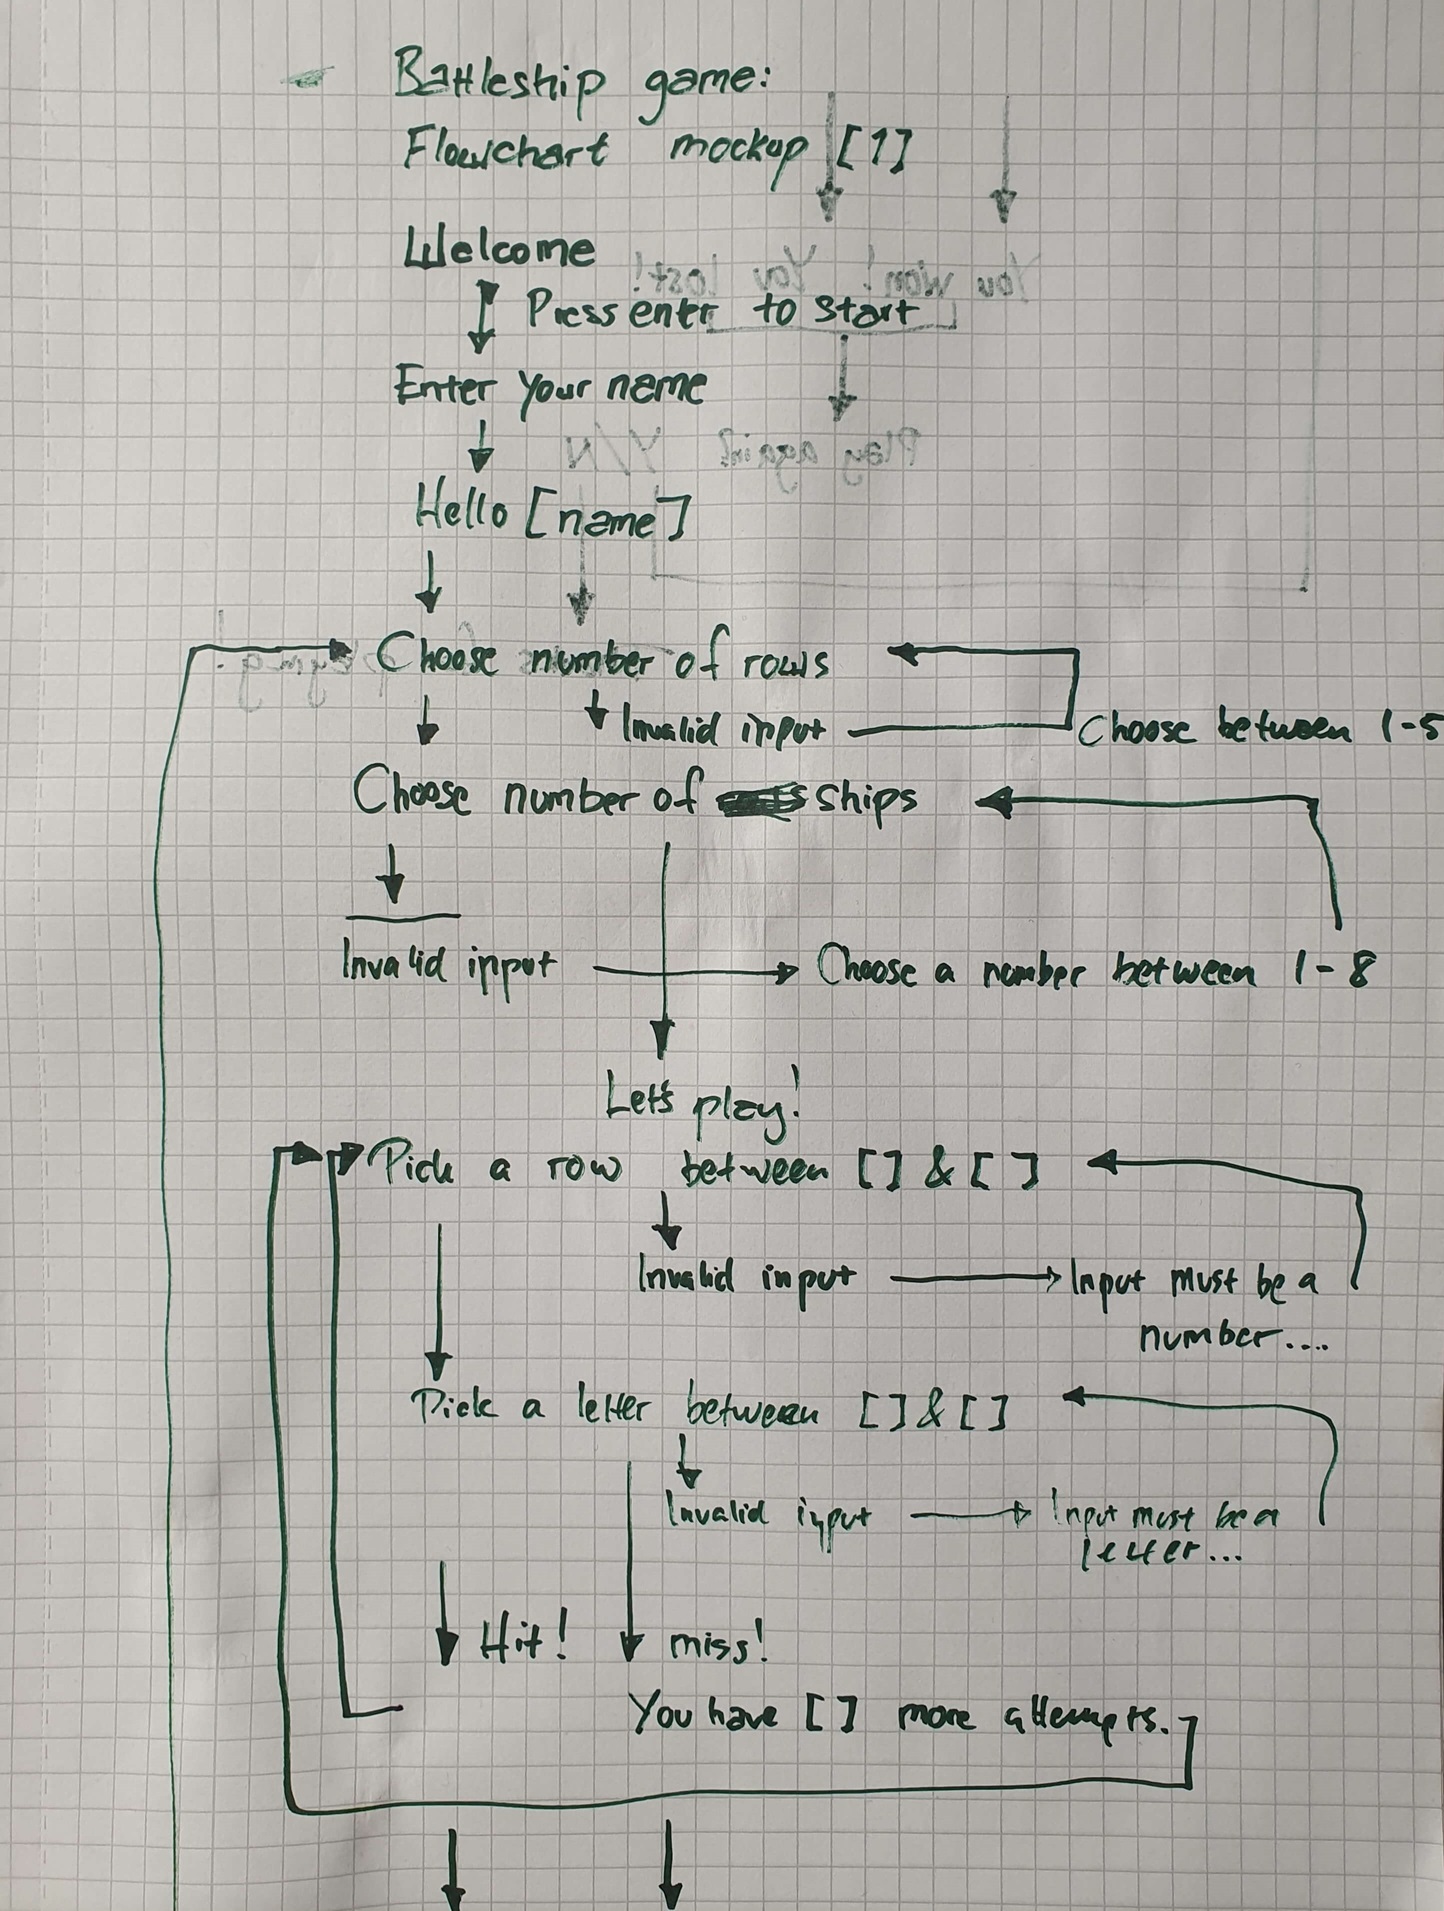 Battleship game:
Flowchart mockup [1]
Welcome
Press enter to start
Enter your name
Hello [name]
Choose number of rows
Invalid input
Choose between 1-5
Choose number of ships
Invalid input
Choose a number between 1-8
Let's play!
Pick a row between [] & [ ]
Invalid input
Input must be a
number....
Pick a letter between [] & []
Invalid input
Input must be a
letter...
Hit! miss!
You have [ ] more attempts.
You won! You lost!
Play again? Y/N